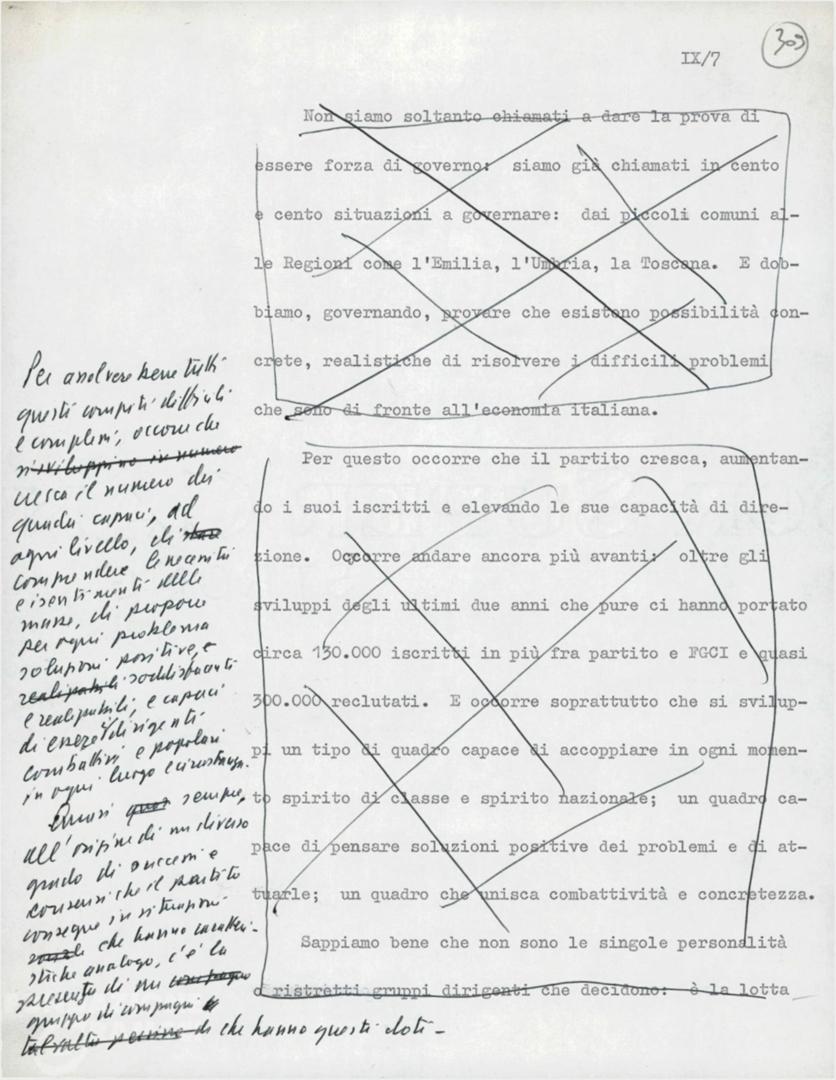 IX/7
309
Non siamo soltanto chiamati a dare la prova di
essere forza di governo: siamo già chiamati in cento
e cento situazioni a governare: dai piccoli comuni al-
le Regioni come l'Emilia, l'Umbria, la Toscana. E dob-
biamo, governando, provare che esistono possibilità con-
crete, realistiche di risolvere i difficili problemi
che sono di fronte all'economia italiana.
Per questo occorre che il partito cresca, aumentan-
do i suoi iscritti e elevando le sue capacità di dire-
zione. Occorre andare ancora più avanti: oltre gli
sviluppi degli ultimi due anni che pure ci hanno portato
circa 130.000 iscritti in più fra partito e FGCI e quasi
300.000 reclutati. E occorre soprattutto che si svilup-
pi un tipo di quadro capace di accoppiare in ogni momen-
to spirito di classe e spirito nazionale; un quadro ca-
pace di pensare soluzioni positive dei problemi e di at-
tuarle; un quadro che unisca combattività e concretezza.
Sappiamo bene che non sono le singole personalità
o ristretti gruppi dirigenti che decidono: è la lotta
Per assolvere bene tutti
questi compiti difficili
e complessi, occorre che
si sviluppino in numero
cresca il numero dei
quadri capaci, ad
ogni livello, di
comprendere le necessità
e i sentimenti delle
masse, di proporre
per ogni problema
soluzioni positive, e
realizzabili soddisfacenti
e realizzabili, e capaci
di essere dirigenti
combattivi e popolari
in ogni luogo e circostanza.
Quasi sempre,
all'origine di un diverso
grado di successi e
consensi che il partito
consegue in situazioni
che hanno caratteri-
stiche analoghe, c'è la
presenza di un compagno
gruppo di compagni
che hanno queste doti -